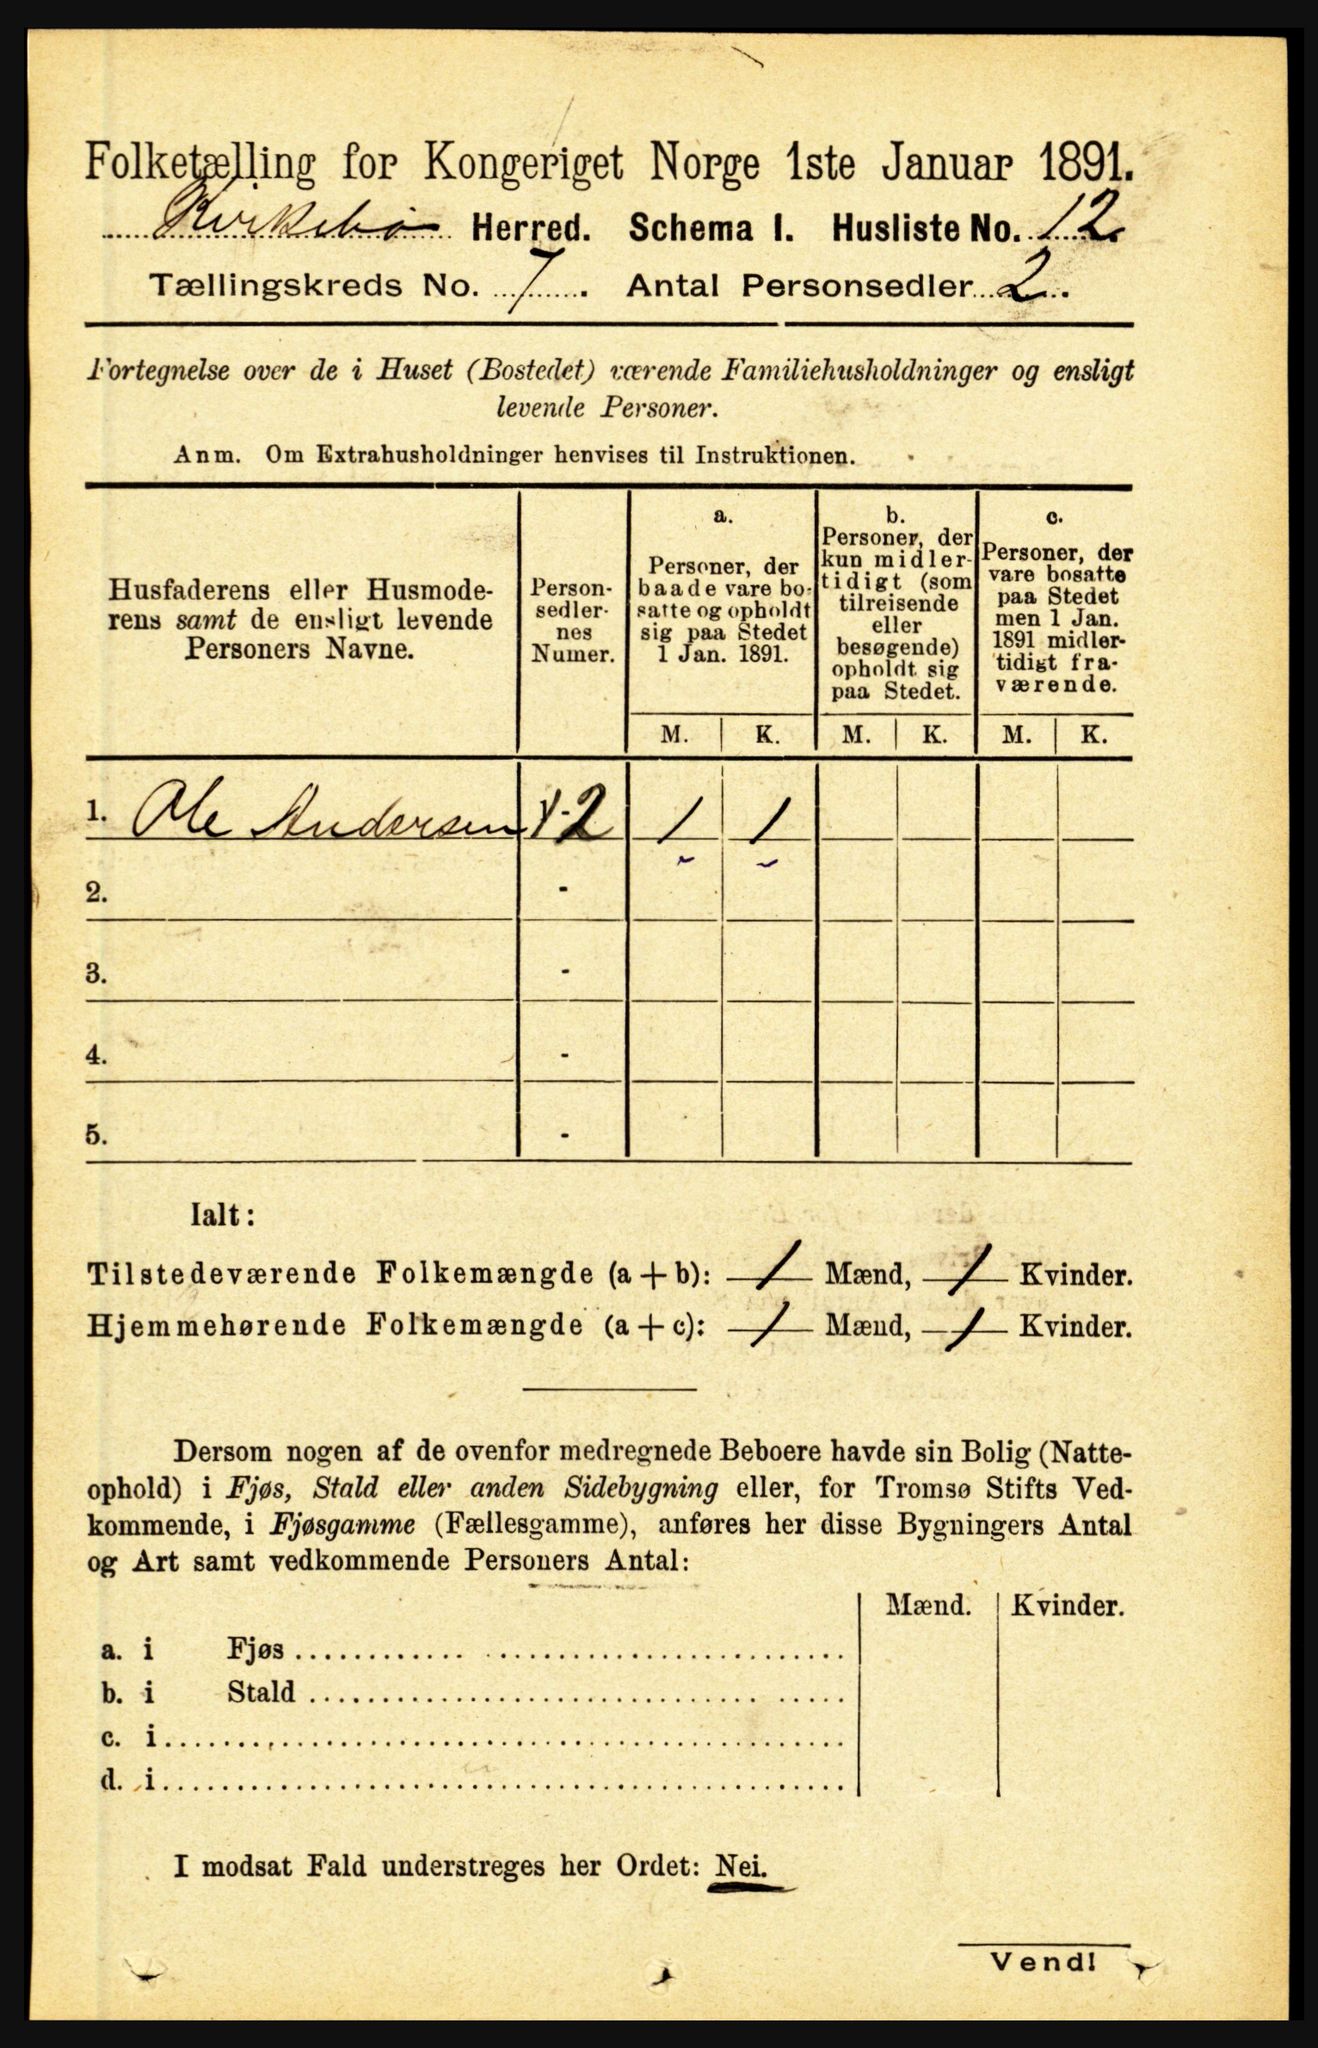 Folketælling for Kongeriget Norge 1ste Januar 1891.
Kirkebø Herred. Schema I. Husliste No. 12
Tællingskreds No. 7. Antal Personsedler 2.
Fortegnelse over de i Huset (Bostedet) værende Familiehusholdninger og ensligt
levende Personer.
Anm. Om Extrahusholdninger henvises til Instruktionen.
Husfaderens eller Husmode-
rens samt de ensligt levende
Personers Navne.
Person-
sedler-
nes
Numer.
a.
Personer, der
baade vare bo-
satte og opholdt
sig paa Stedet
1 Jan. 1891.
b.
Personer, der
kun midler-
tidigt (som
tilreisende
eller
besøgende)
opholdt sig
paa Stedet.
c.
Personer, der
vare bosatte
paa Stedet
men 1 Jan.
1891 midler-
tidigt fra-
værende.
M. K. M. K. M. K.
1. Ole Andersen 1-2 1 1
2. -
3. -
4. -
5. -
Ialt:
Tilstedeværende Folkemængde (a+b): 1 Mænd, 1 Kvinder.
Hjemmehørende Folkemængde (a+c): 1 Mænd, 1 Kvinder.
Dersom nogen af de ovenfor medregnede Beboere havde sin Bolig (Natte-
ophold) i Fjøs, Stald eller anden Sidebygning eller, for Tromsø Stifts Ved-
kommende, i Fjøsgamme (Fællesgamme), anføres her disse Bygningers Antal
og Art samt vedkommende Personers Antal:
Mænd. Kvinder.
a. i Fjøs
b. i Stald
c. i
d. i
I modsat Fald understreges her Ordet: Nei.
Vend!